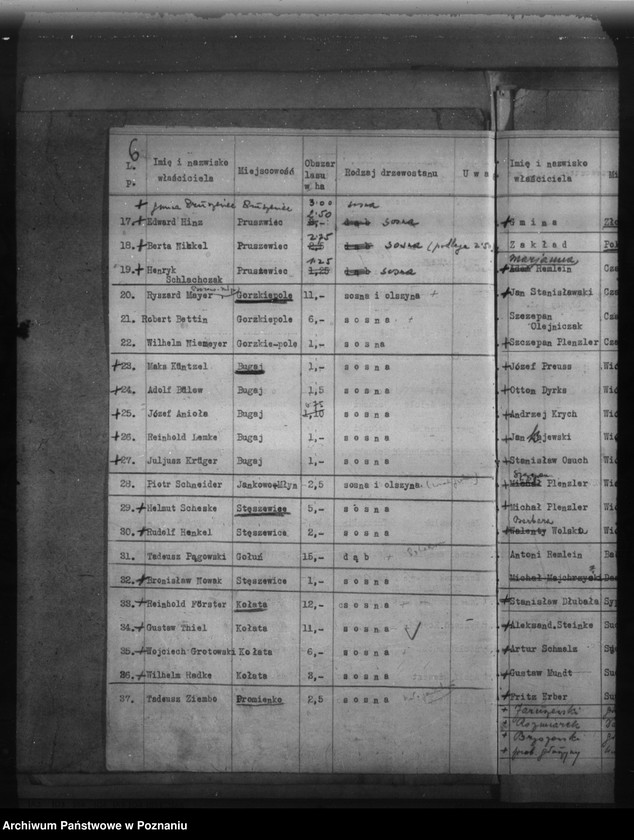 6
L. p. Imię i nazwisko właściciela Miejscowość Obszar lasu w ha Rodzaj drzewostanu U w a
+ 3.00 sosna
17.+ Edward Hinz Pruszwiec 2.50 sosna
18.+ Berta Nikkel Pruszewiec 2.75 sosna
19.+ Henryk Schlachczak Pruszewiec 1.25 1,25 sosna
20. Ryszard Mayer Gorzkiepole 11,- sosna i olszyna
21. Robert Bettin Gorzkiepole 6,- s o s n a
22. Wilhelm Niemeyer Gorzkie-pole 1,- s o s n a
+23. Maks Küntzel Bugaj 1,- s o s n a
+24. Adolf Bülow Bugaj 1,5 s o s n a
+25. Józef Anioła Bugaj 1,10 s o s n a
+26. Reinhold Lemke Bugaj 1,- s o s n a
+27. Juljusz Krüger Bugaj 1,- s o s n a
28. Piotr Schneider Jankowo-Młyn 2,5 sosna i olszyna
29.+ Helmut Scheske Stęszewice 5,- s o s n a
30.+ Rudolf Henkel Stęszewice 2,- s o s n a
31. Tadeusz Pągowski Gołuń 15,- d ą b
32.+ Bronisław Nowak Stęszewice 1,- s o s n a
33.+ Reinhold Förster Kołata 12,- s o s n a
34.+ Gustaw Thiel Kołata 11,- s o s n a
35.+ Wojciech Grotowski Kołata 6,- s o s n a
36.+ Wilhelm Radke Kołata 3,- s o s n a
37. Tadeusz Ziembo Promienko 2,5 s o s n a
Imię i nazwisko właściciela Mi
+ G m i n a
Z a k ł a d
Marjanna
+ Remlein Cze
+ Jan Stanisławski Cze
Szczepan Olejniczak Cze
+ Szczepan Plenzler Cze
+ Józef Preuss Wię
+ Otton Dyrks Wię
+ Andrzej Krych Wię
+ Jan Kajewski Wię
+ Stanisław Osuch Wię
+ Michał Plenzler Wię
+ Michał Plenzler Wię
Barbara
+ Walenty Wolska Wię
Antoni Remlein
Michał Majchrzycki
+ Stanisław Dłubała
+ Aleksand.Steinke
+ Artur Schmalz
+ Gustaw Mundt
+ Fritz Erber
+ Rozmiarek
Archiwum Państwowe w Poznaniu